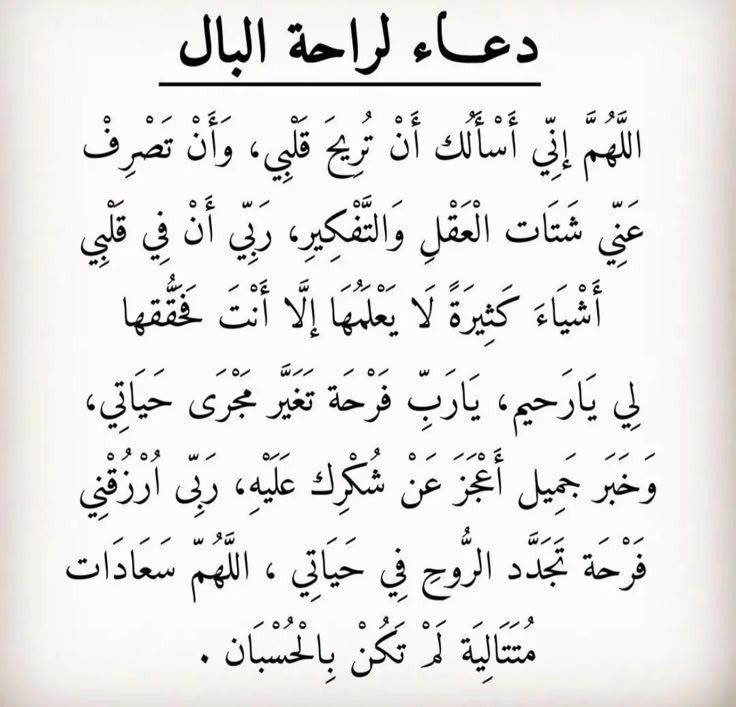 دعـــاء لراحة البال
اللَّهُمَّ إِنِّي أَسْأَلُك أَنْ تُرِيحَ قَلْبِي، وَأَنْ تَصْرِفْ
عَنِّي شَتَات الْعَقْلِ وَالتَّفْكِيرِ، رَبِّي أَنْ فِي قَلْبِي
أَشْيَاءَ كَثِيرَةً لَا يَعْلَمُهَا إِلَّا أَنْتَ فَحَقُّقها
لِي يَارَحيم، يَارَبِّ فَرْحَة تَغَيَّر مَجْرَى حَيَاتِي،
وَخَبَر جَمِيل أَعْجَزَ عَنْ شُكْرِك عَلَيْهِ، رَبِّى اُرْزُقْنِي
فَرْحَة تَجَدَّد الرُّوحِ فِي حَيَاتِي ، اللَّهُمّ سَعَادَات
مُتَتَالِيَة لَمْ تَكُنْ بِالْحُسْبَان .